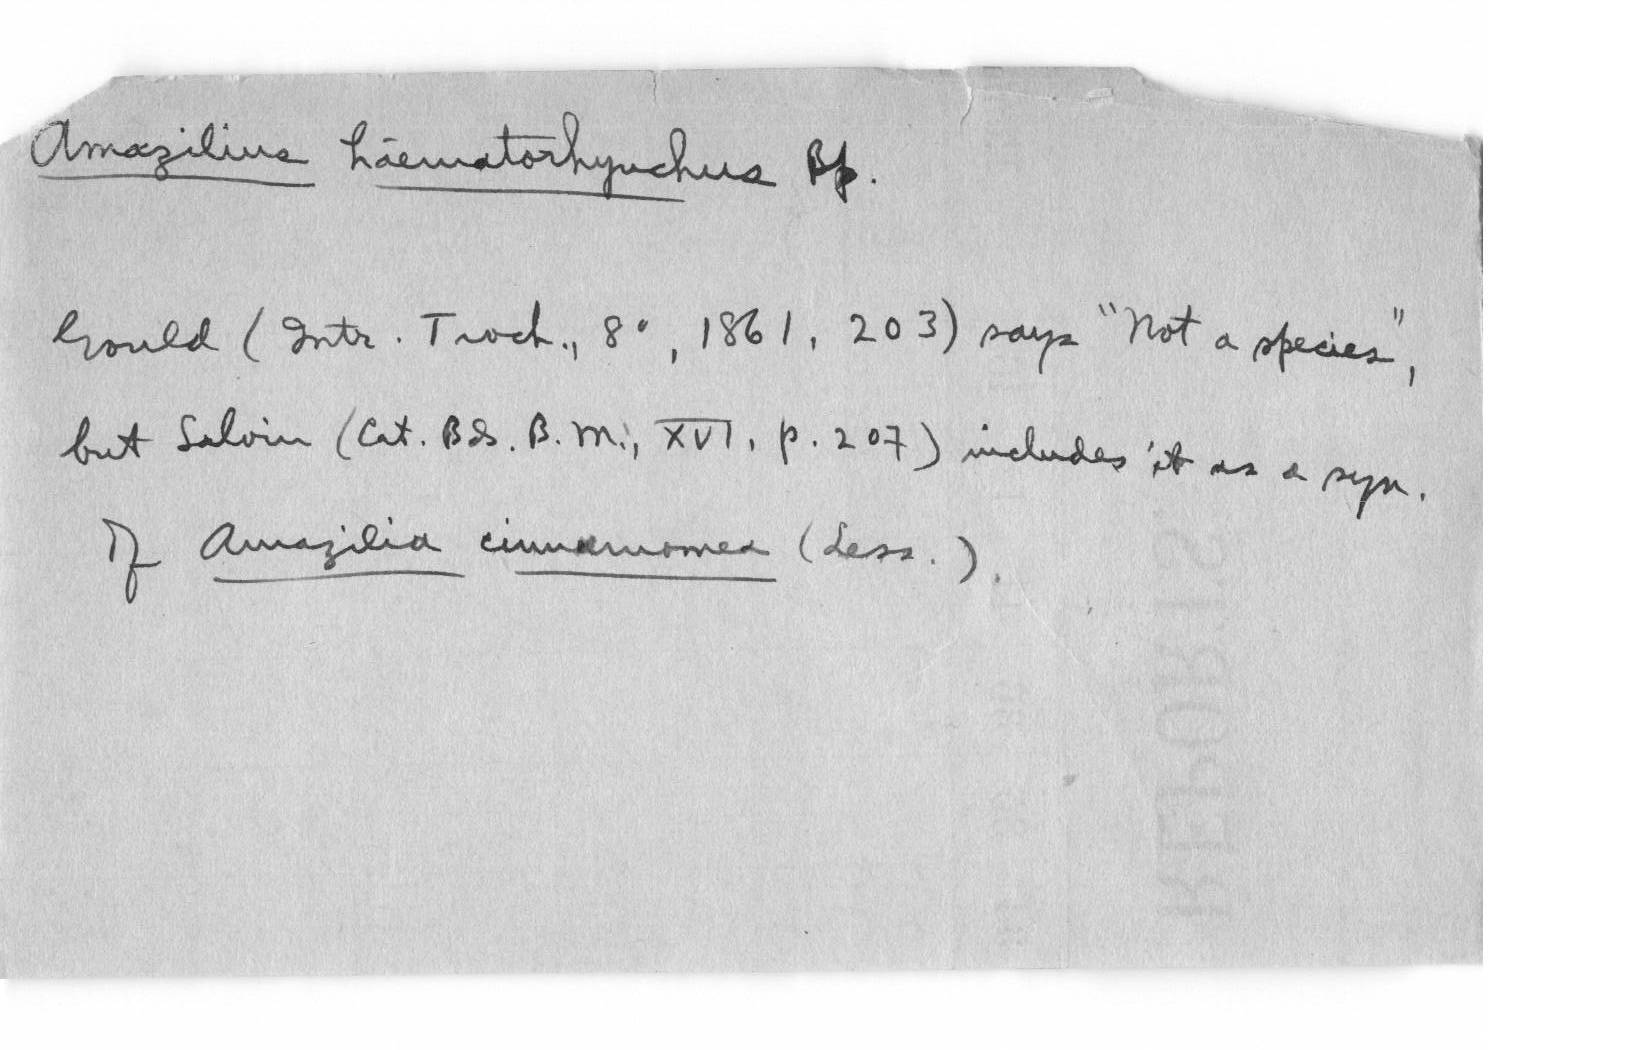 Amazilius haematorhynchus Bp.
Gould (Intr. Troch., 8°, 1861, 203) says "Not a species",
but Salvin (Cat. Bds. B.M., XVI, p. 207) includes it as a syn.
of Amazilia cinnamomea (Less.).
REPORTS